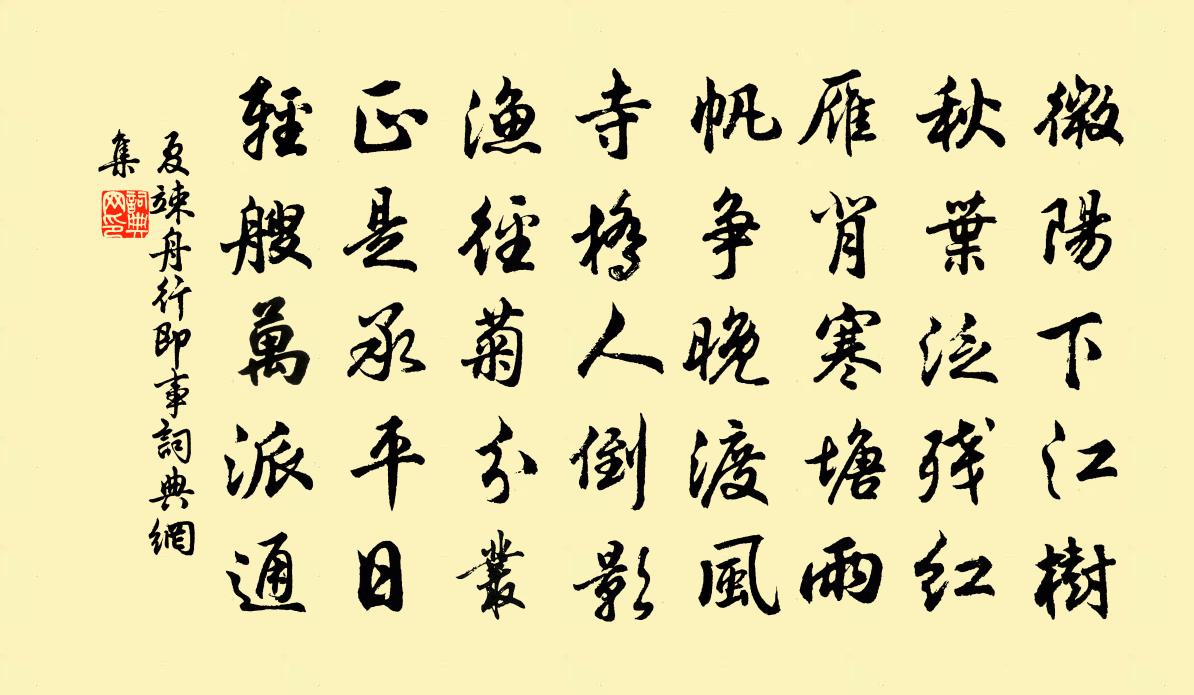 微陽下江樹
秋葉泛残紅
雁背寒塘雨
帆争晚渡風
寺橋人倒影
漁徑菊分叢
正是承平日
輕艘萬派通
夏竦舟行即事詞典網
集
詞典網印